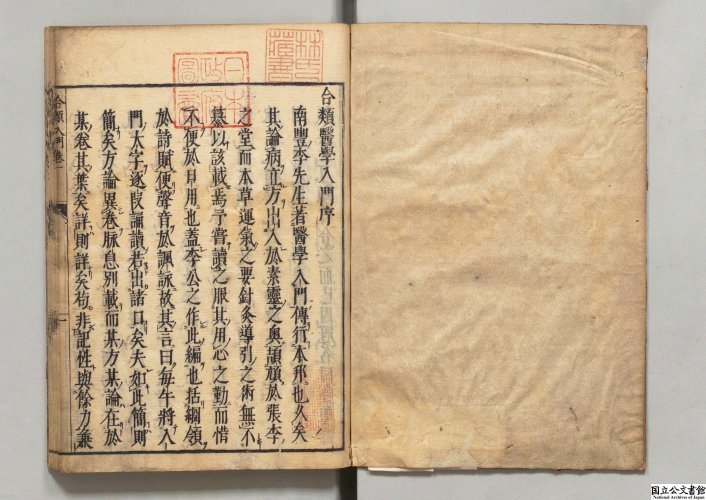 合類醫學入門序
南豐李先生著醫學入門傳行本邦也久矣
其論病立方出入於素靈之奧頡頏於張李
之堂而本草運氣之要針灸導引之術無不
纂以該載焉予嘗讀之服其用心之勤而惜
不便於日用也蓋李公之作此編也括綱領
於詩賦便聲音於諷詠故其言曰每午將入
門大字逐段誦讀若出諸口矣夫如此簡則
簡矣方論異卷脉息別載而某方某論在於
某卷其葉矣詳則詳矣苟非記性與餘力兼
合類入門卷一
一
林氏藏書
日本政府圖書
国立公文書館
National Archives of Japan